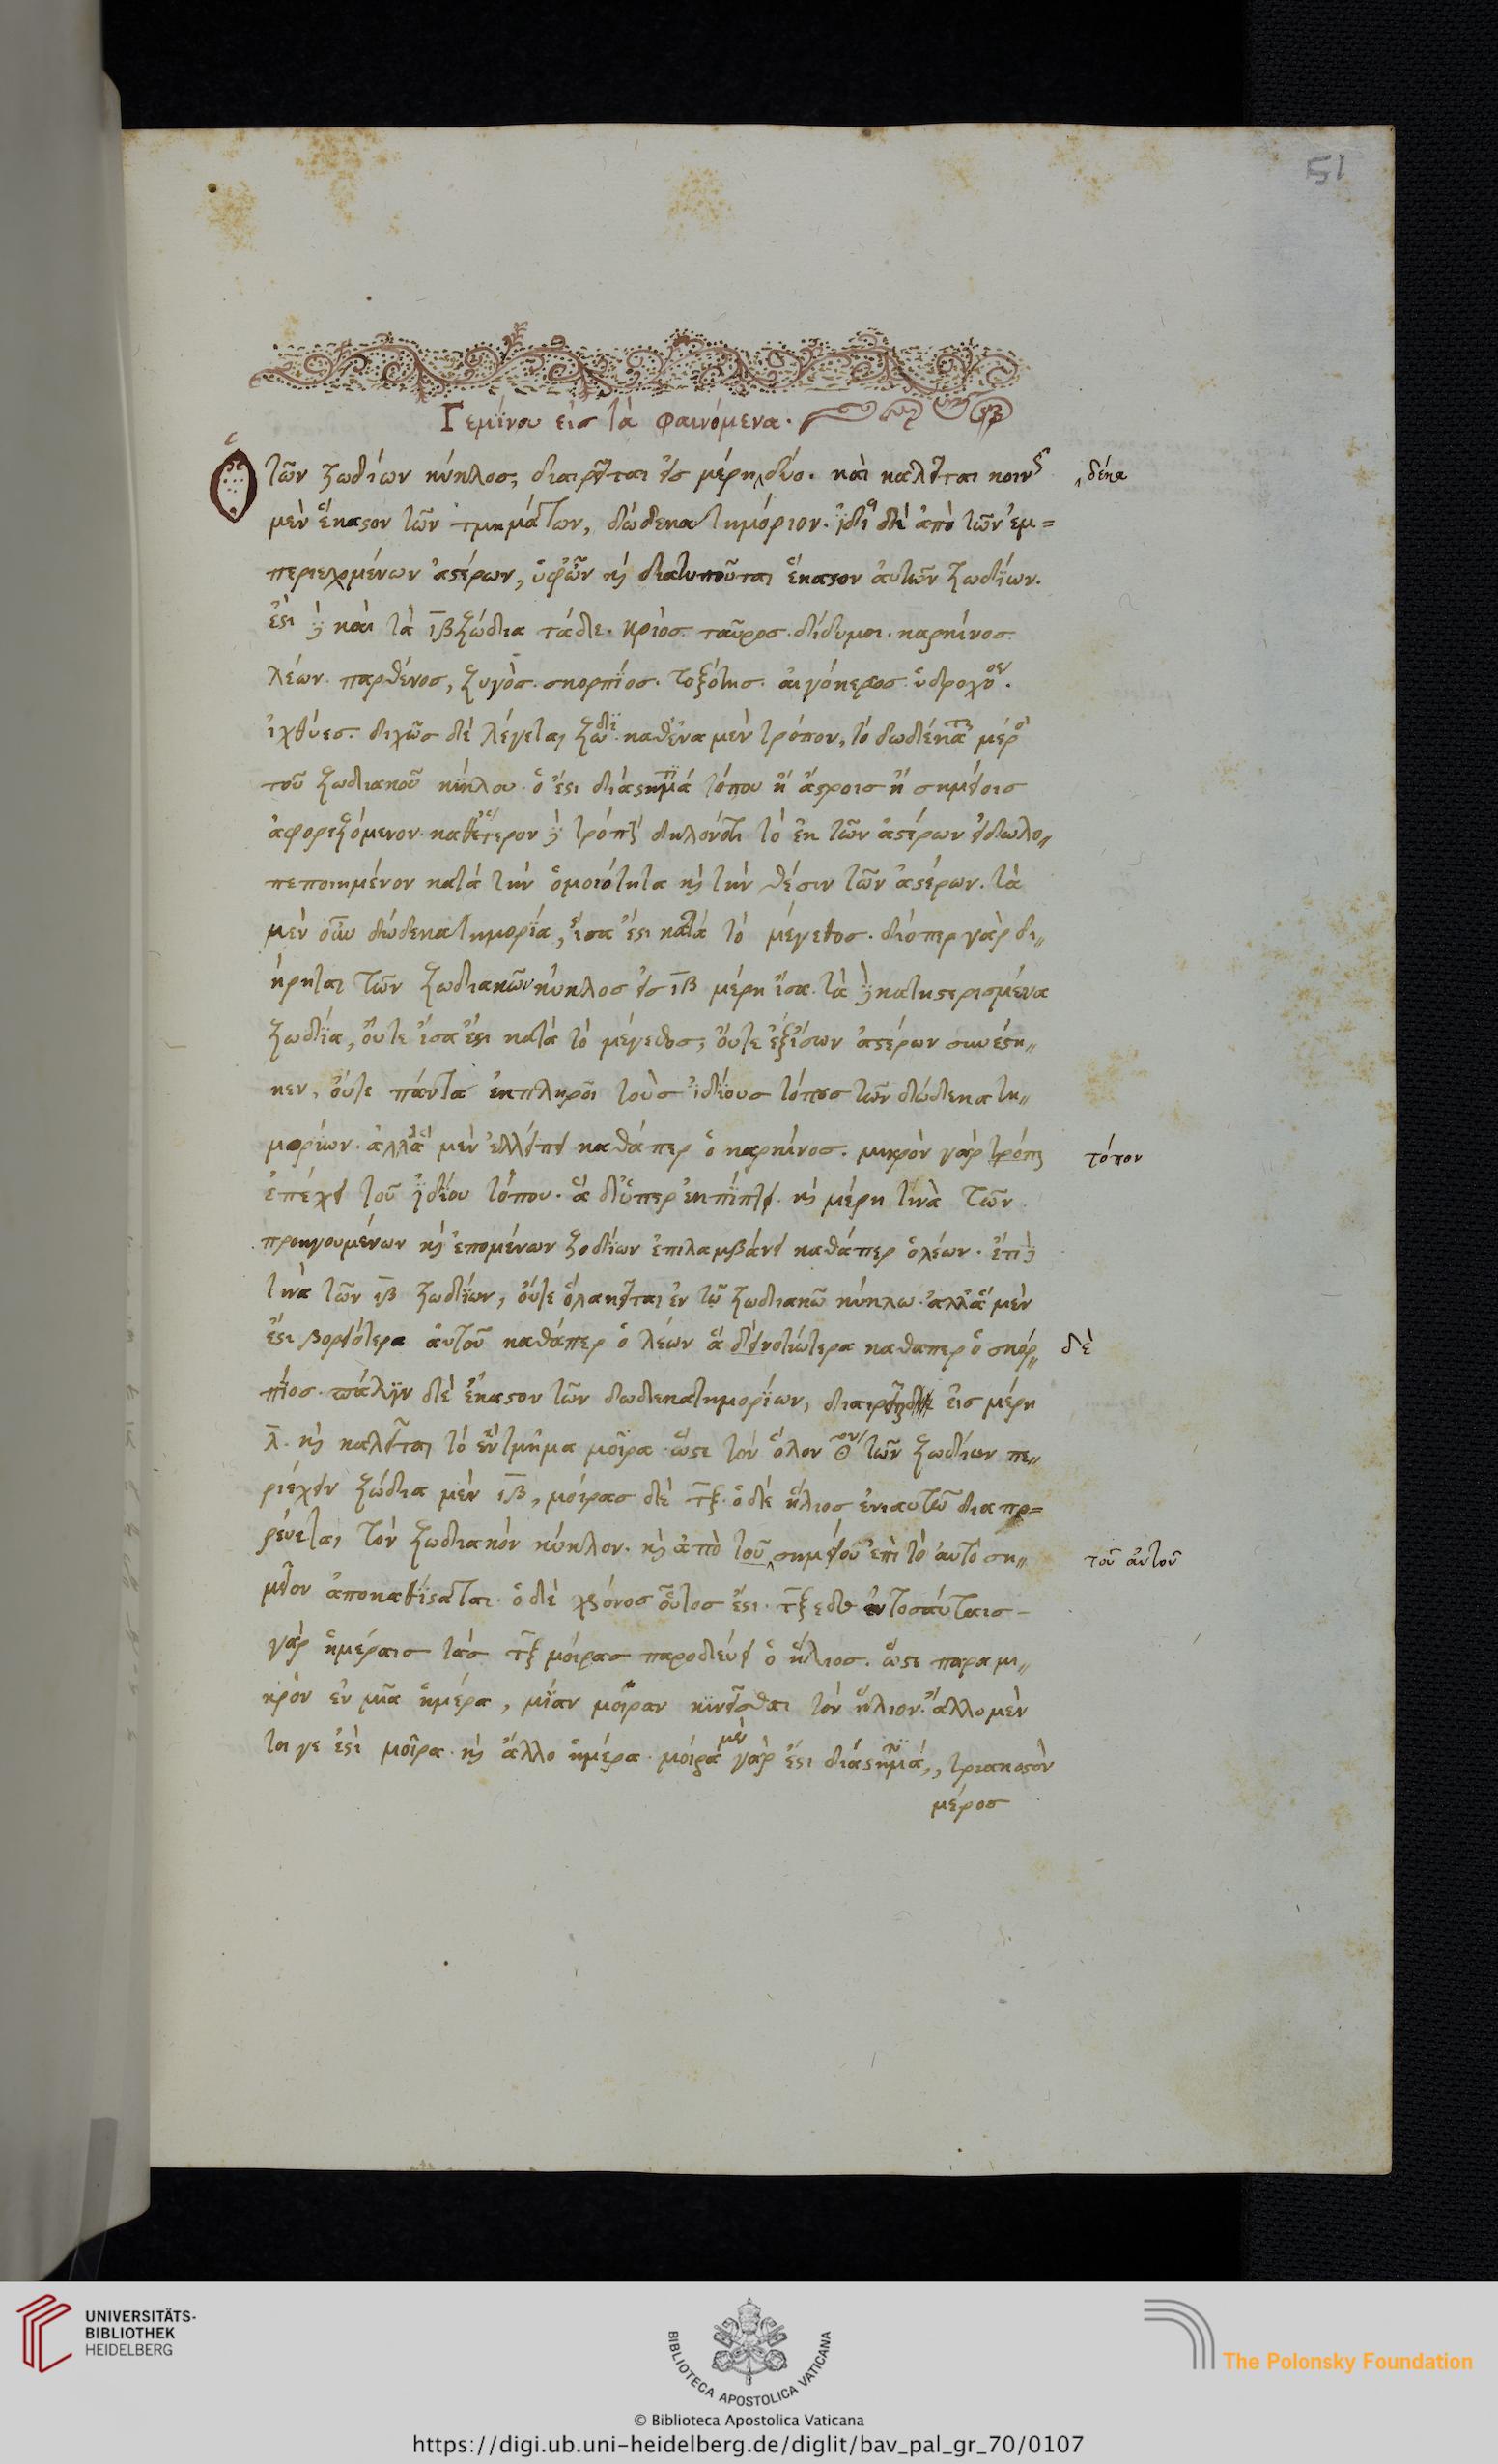 51
Γεμίνου εἰς τὰ Φαινόμενα.
Ὁ τῶν ζωδίων κύκλος, διαιρεῖται εἰς μέρη δύο. καὶ καλεῖται κοινῶς
δέκα
μὲν ἕκαστον τῶν τμημάτων, δώδεκατημόριον. ἰδίᾳ δὲ ἀπὸ τῶν ἐμ=
περιεχομένων ἀστέρων, ὑφ' ὧν καὶ διατυποῦται ἕκαστον αὐτῶν ζωδίων.
ἐστὶ δὲ καὶ τὰ ιβ ζώδια τάδε. κριός. ταῦρος. δίδυμοι. καρκίνος.
λέων. παρθένος, ζυγὸς. σκορπίος. τοξότης. αἰγόκερως. ὑδροχόος.
ἰχθύες. διχῶς δὲ λέγεται ζώδιον. καθ' ἕνα μὲν τρόπον, τὸ δωδέκατον μέρος
τοῦ ζωδιακοῦ κύκλου. ὅ ἐστι διάστημά τι τόπου ἢ ἄστροις ἢ σημείοις
ἀφοριζόμενον. καθ' ἕτερον δὲ τρόπον δηλονότι τὸ ἐκ τῶν ἀστέρων εἰδωλο„
πεποιημένον κατὰ τὴν ὁμοιότητα καὶ τὴν θέσιν τῶν ἀστέρων. τὰ
μὲν οὖν δώδεκατημορία, ἴσα ἐστὶ κατὰ τὸ μέγεθος. διόπερ γὰρ δι„
ήρηται τῶν ζωδιακῶν κύκλος εἰς ιβ μέρη ἴσα. τὰ δὲ κατηστερισμένα
ζωδία, οὔτε ἴσα ἐστὶ κατὰ τὸ μέγεθος, οὔτε ἐξ ἴσων ἀστέρων συνέστη„
κεν, οὔτε πάντα ἐκπληροῖ τοὺς ἰδίους τόπους τῶν δώδεκατη„
μορίων. ἀλλ' ἃ μὲν ἐλλείπει καθάπερ ὁ καρκίνος. μικρὸν γὰρ τρόπον
τόπον
ἐπέχει τοῦ ἰδίου τόπου. ἃ δ' ὑπερεκπίπτει. καὶ μέρη τινὰ τῶν
προηγουμένων καὶ ἑπομένων ζοδίων ἐπιλαμβάνει καθάπερ ὁ λέων. ἔτι δὲ
τινὰ τῶν ιβ ζωδίων, οὔτε ὅλα κεῖται ἐν τῷ ζωδιακῷ κύκλω. ἀλλ' ἃ μὲν
ἐστι βορειότερα αὐτοῦ καθάπερ ὁ λέων ἃ δὲ νοτιώτερα καθαπερ ὁ σκορ„
δὲ
πίος. πάλιν δὲ ἕκαστον τῶν δωδεκατημορίων, διαιρεῖται εἰς μέρη
λ. καὶ καλεῖται τὸ ἓν τμῆμα μοῖρα. ὥστε τὸν ὅλον κύκλον τῶν ζωδίων πε„
ριέχειν ζώδια μὲν ιβ, μοίρας δὲ τξ. ὁ δὲ ἥλιος ἐνιαυτῷ διαπο=
ρεύεται τὸν ζωδιακὸν κύκλον. καὶ ἀπὸ τοῦ σημείου ἐπὶ τὸ αὐτὸ ση„
τοῦ αὐτοῦ
μεῖον ἀποκαθίσταται. ὁ δὲ χρόνος οὗτός ἐστι. τξε δʹ ἐν τοσαύταις
γὰρ ἡμέραις τὰς τξ μοίρας παροδεύει ὁ ἥλιος. ὥστε παρα μι„
κρὸν ἐν μιᾶ ἡμέρα, μίαν μοῖραν κινεῖσθαι τὸν ἥλιον. ἄλλο μέν
τοι γε ἐστὶ μοῖρα. καὶ ἄλλο ἡμέρα. μοίρα μὲν γὰρ ἐστι διάστημά τι, τριακοστὸν
μέρος
UNIVERSITÄTS-
BIBLIOTHEK
HEIDELBERG
BIBLIOTECA APOSTOLICA VATICANA
The Polonsky Foundation
© Biblioteca Apostolica Vaticana
https://digi.ub.uni-heidelberg.de/diglit/bav_pal_gr_70/0107